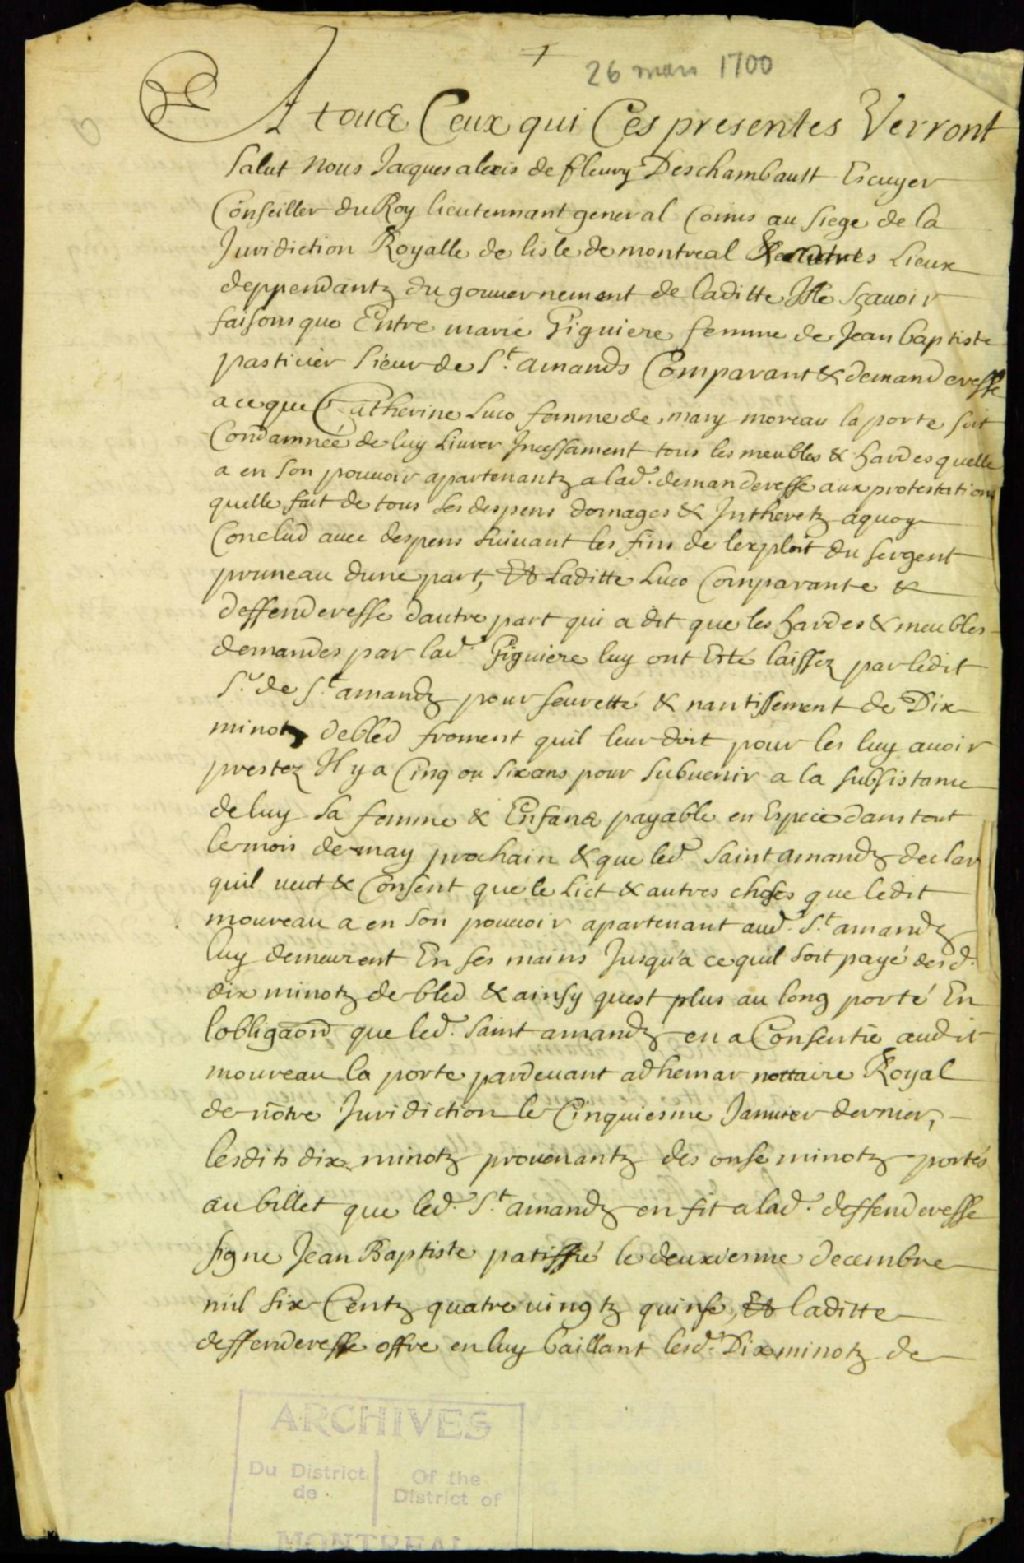 26 mars 1700
A tous Ceux qui Ces presentes Verront
Salut nous Jacques alexis de fleury Deschambault Escuyer
Conseiller du Roy lieutennant general Comis au siege de la
Jurisdiction Royalle de lisle de montreal & autres Lieux
deppendantz du gouvernement de laditte Isle sçavoir
faisons que Entre marie Figuiere femme de Jean baptiste
pastirier sieur de St. amands Comparant & demanderesse
a ce que Catherine Luco femme de mary moreau la porte soit
Condamnée de luy livrer Incessament tous les meubles & hardes quelle
a en son pouvoir apartenantz a lad. demanderesse aux protestations
quelle fait de tous ses despens domages & Intheretz aquoy
Conclud avec despens suivant les fins de lexploit du sergent
pruneau dune part, Et Laditte Luco Comparante &
deffenderesse dautre part qui a dit que les hardes & meubles
demandes par lad. Figuiere luy ont Esté laissez par ledit
Sr. de St. amandz pour seuretté & nantissement de Dix
minotz de bled froment quil leur doit pour les luy avoir
prestez Il y a Cinq ou six ans pour subvenir a la subsistance
de luy sa femme & Enfans payable en Espece dans tout
le mois de may prochain & que led. saint amandz declare
quil veut & Consent que le Lict & autres choses que ledit
moureau a en son pouvoir apartenant aud. St. amandz
luy demeurent En ses mains Jusqua ce quil soit payé desd.
dix minotz de bled & ainsy quest plus au long porté En
lobligaon que led. saint amandz en a Consentie audit
moureau la porte pardevant adhemar nottaire Royal
de nôtre Jurisdiction le Cinquiesme Janvier dernier,
lesdits dix minotz provenantz des onse minotz portés
au billet que led. St. amandz en fit a lad. deffenderesse
signe Jean Baptiste patissié le deuxiesme decembre
mil six Centz quatre vingtz quinse, Et laditte
deffenderesse offre en luy baillant lesd. Dix minotz de
ARCHIVES
Du District de
Of the District of
MONTREAL